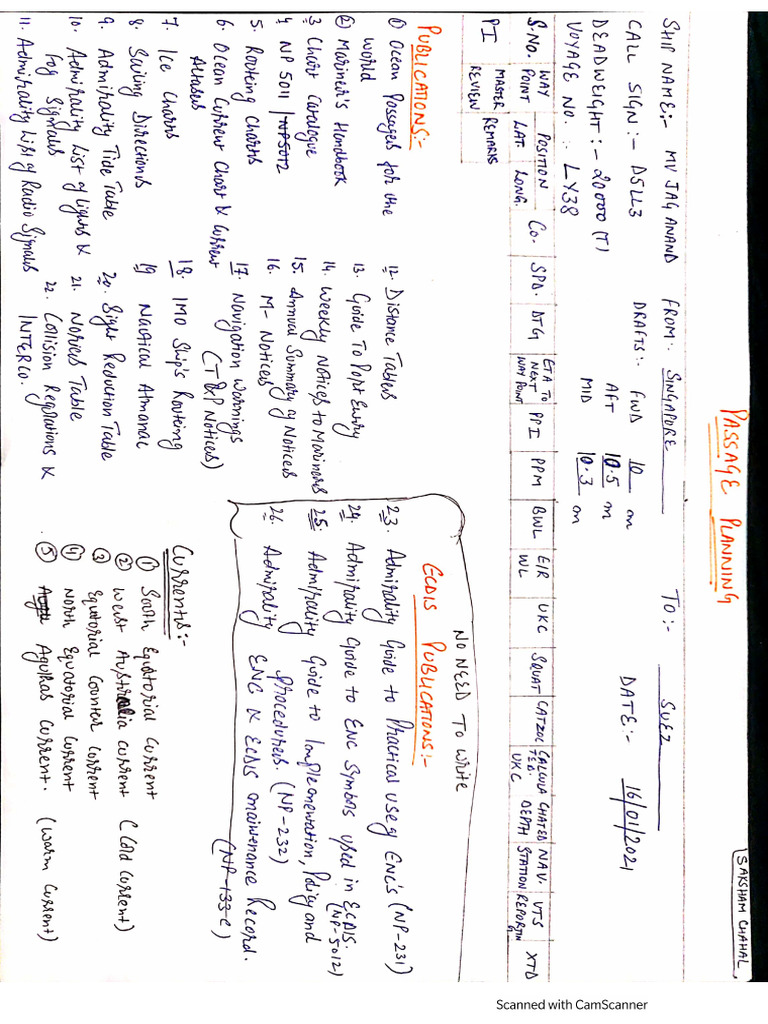 SAKSHAM CHAHAL
PASSAGE PLANNING
SHIP NAME:- MV JAG ANAND FROM:- SINGAPORE TO:- SUEZ
CALL SIGN:- D5LL3 DRAFTS:- FWD 10 m DATE:- 16/01/2021
DEADWEIGHT:- 20000 (T) AFT 10.5 m
VOYAGE NO.:- LY38 MID 10.3 m
S.No. WAY POINT POSITION LAT. LONG. Co. SPD. DTG ETA TO NEXT WAY POINT PPI PPM BWL EIR WL UKC SQUAT CATZOC CALCULATED UKC CHATED DEPTH NAV. STATION VTS REPORTIN XTD
PI MASTER REVIEW REMARKS
PUBLICATIONS:-
① Ocean Passages for the world
② Mariner's Handbook
3 Chart Catalogue
4 NP 5011 / NP5012
5. Routing Charts
6. Ocean Current Chart & Current Atlases
7. Ice Charts
8. Sailing Directions
9. Admirality Tide Table
10. Admirality List of Lights & Fog Signals
11. Admirality List of Radio Signals
12. Distance Tables
13. Guide To Port Entry
14. Weekly Notices to Mariners
15. Annual Summary of Notices
16. M- Notices
17. Navigation Warnings (T&P Notices)
18. IMO Ship's Routing
19 Nautical Almanac
20. Sight Reduction Table
21. Nories Table
22. Collision Regulations & INTERCO.
NO NEED TO WRITE
ECDIS PUBLICATIONS:-
23. Admirality Guide to Practical use of ENC's (NP-231)
24. Admirality Guide to ENC Symbols used in ECDIS. (NP-5012)
25. Admirality Guide to Implementation, Policy and Procedures. (NP-232)
26. Admirality ENC & ECDIS maintenance Record. (NP-133-C)
Currents:-
① South Equatorial Current
② West Australia current (Cold current)
③ Equatorial Counter Current
④ North Equatorial Current
⑤ Agulhas Current. (Warm Current)
Scanned with CamScanner